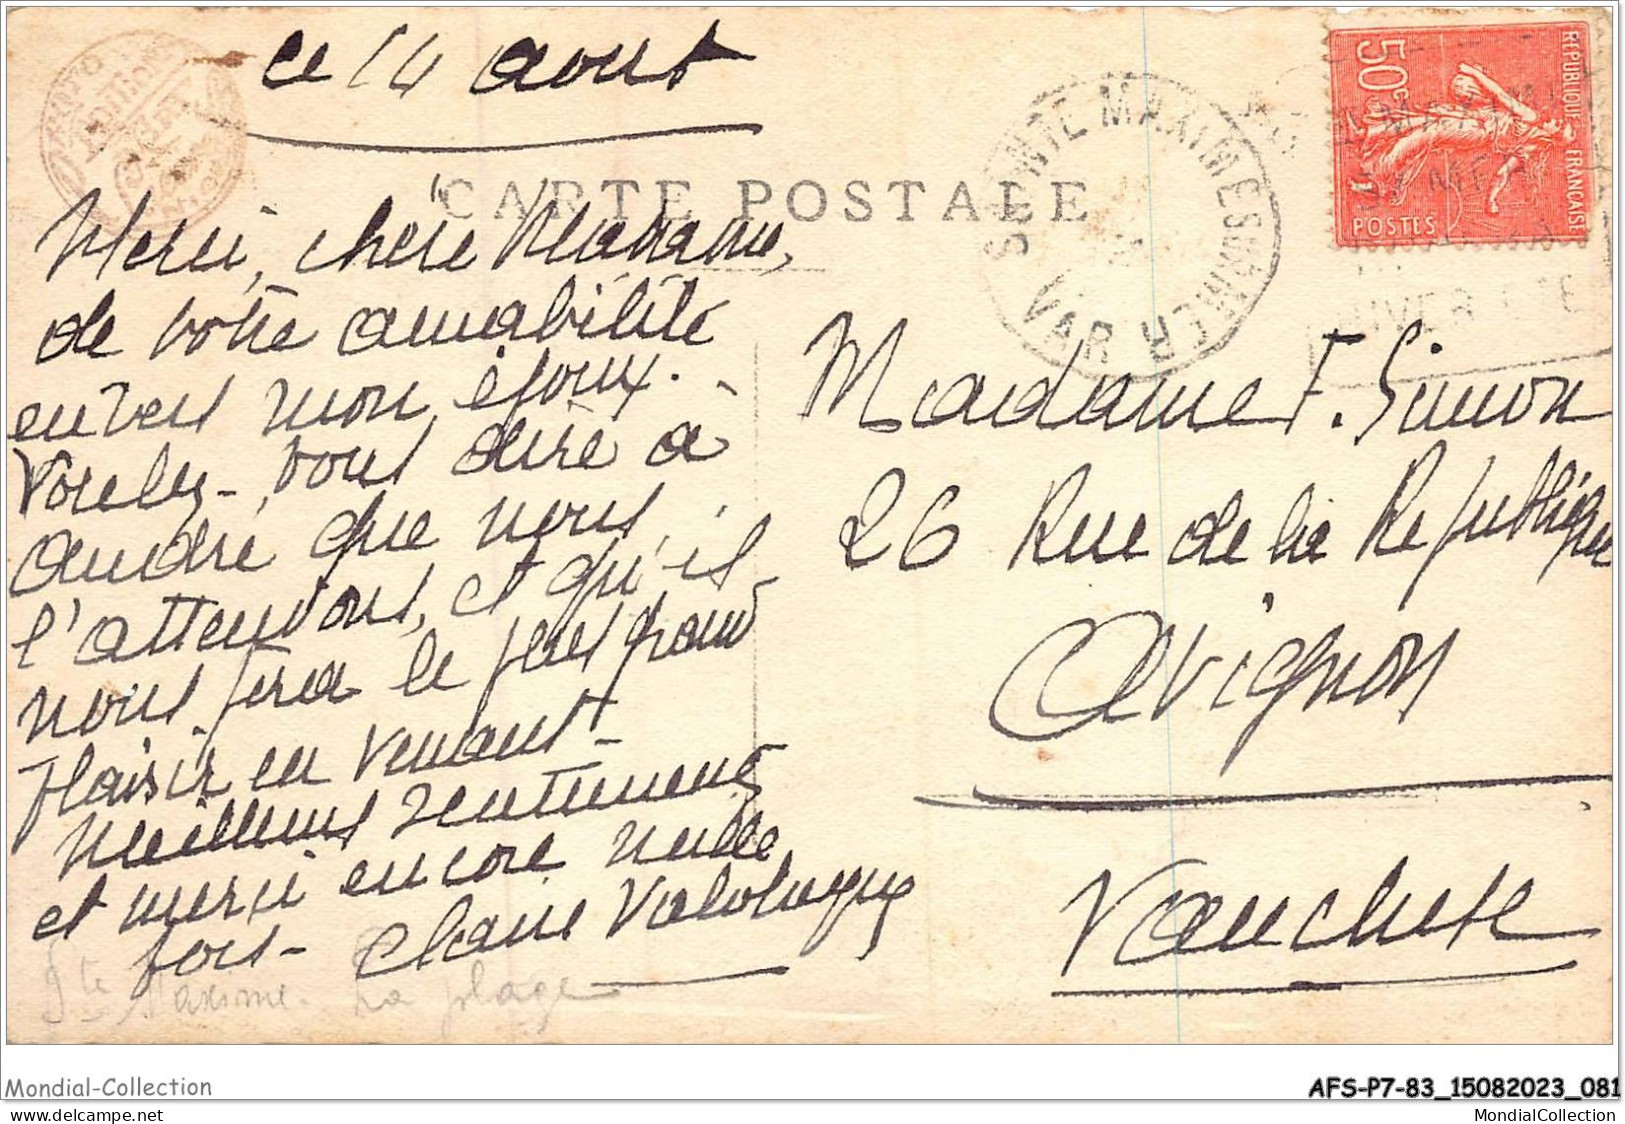 ce 14 aout
CARTE POSTALE
Merci, chère Madame,
de votre amabilité
envers mon époux.
Voulez-vous dire à
André que nous
l'attendons, et qu'il
nous fera le plus grand
plaisir en venant-
Meilleurs sentiments
et merci encore mille
fois- Claire
Ste Maxime - La plage
SAINTE MAXIME SUR MER
VAR
50c
REPUBLIQUE FRANÇAISE
POSTES
HIVER ETE
Madame F. Simon
26 Rue de la Republique
Avignon
Vaucluse
Mondial-Collection
AFS-P7-83_15082023_081
MondialCollection